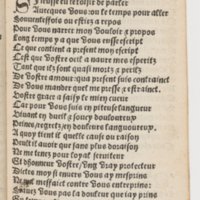 Si feusse en loisir de parler
Auecques vous: ou le temps pour aller
Souuenteffois ou estiez a repos
Pour vous narrer mon vouloir a propos
Long temps y a que vous eusse escript
Ce que contient a present mon escript
Cest que vostre oeil a naure mes esperitz
Tant que ilz sont quasi mortz a peritz
De vostre amour qua present suis contrainct
De vous mander quel me presse & estrainct.
Vostre grace a saisy le mien cueur
Car pour vous suis en piteuse langueur
Viuant en dueil & soucy douloureux
Peines/regretz/en douleur langoureux.
A quoy tient il quelle cause ou raison
Deult il auoir que sans plus doraison
Ne me tenez pour loyal seruiteur
Et dhonneur vostre/ung vray protecteur
Dictes moy si enuers vous ay mesprins
Ne quel meffaict contre vous entreprins:
vous pas la douleur que iay prins